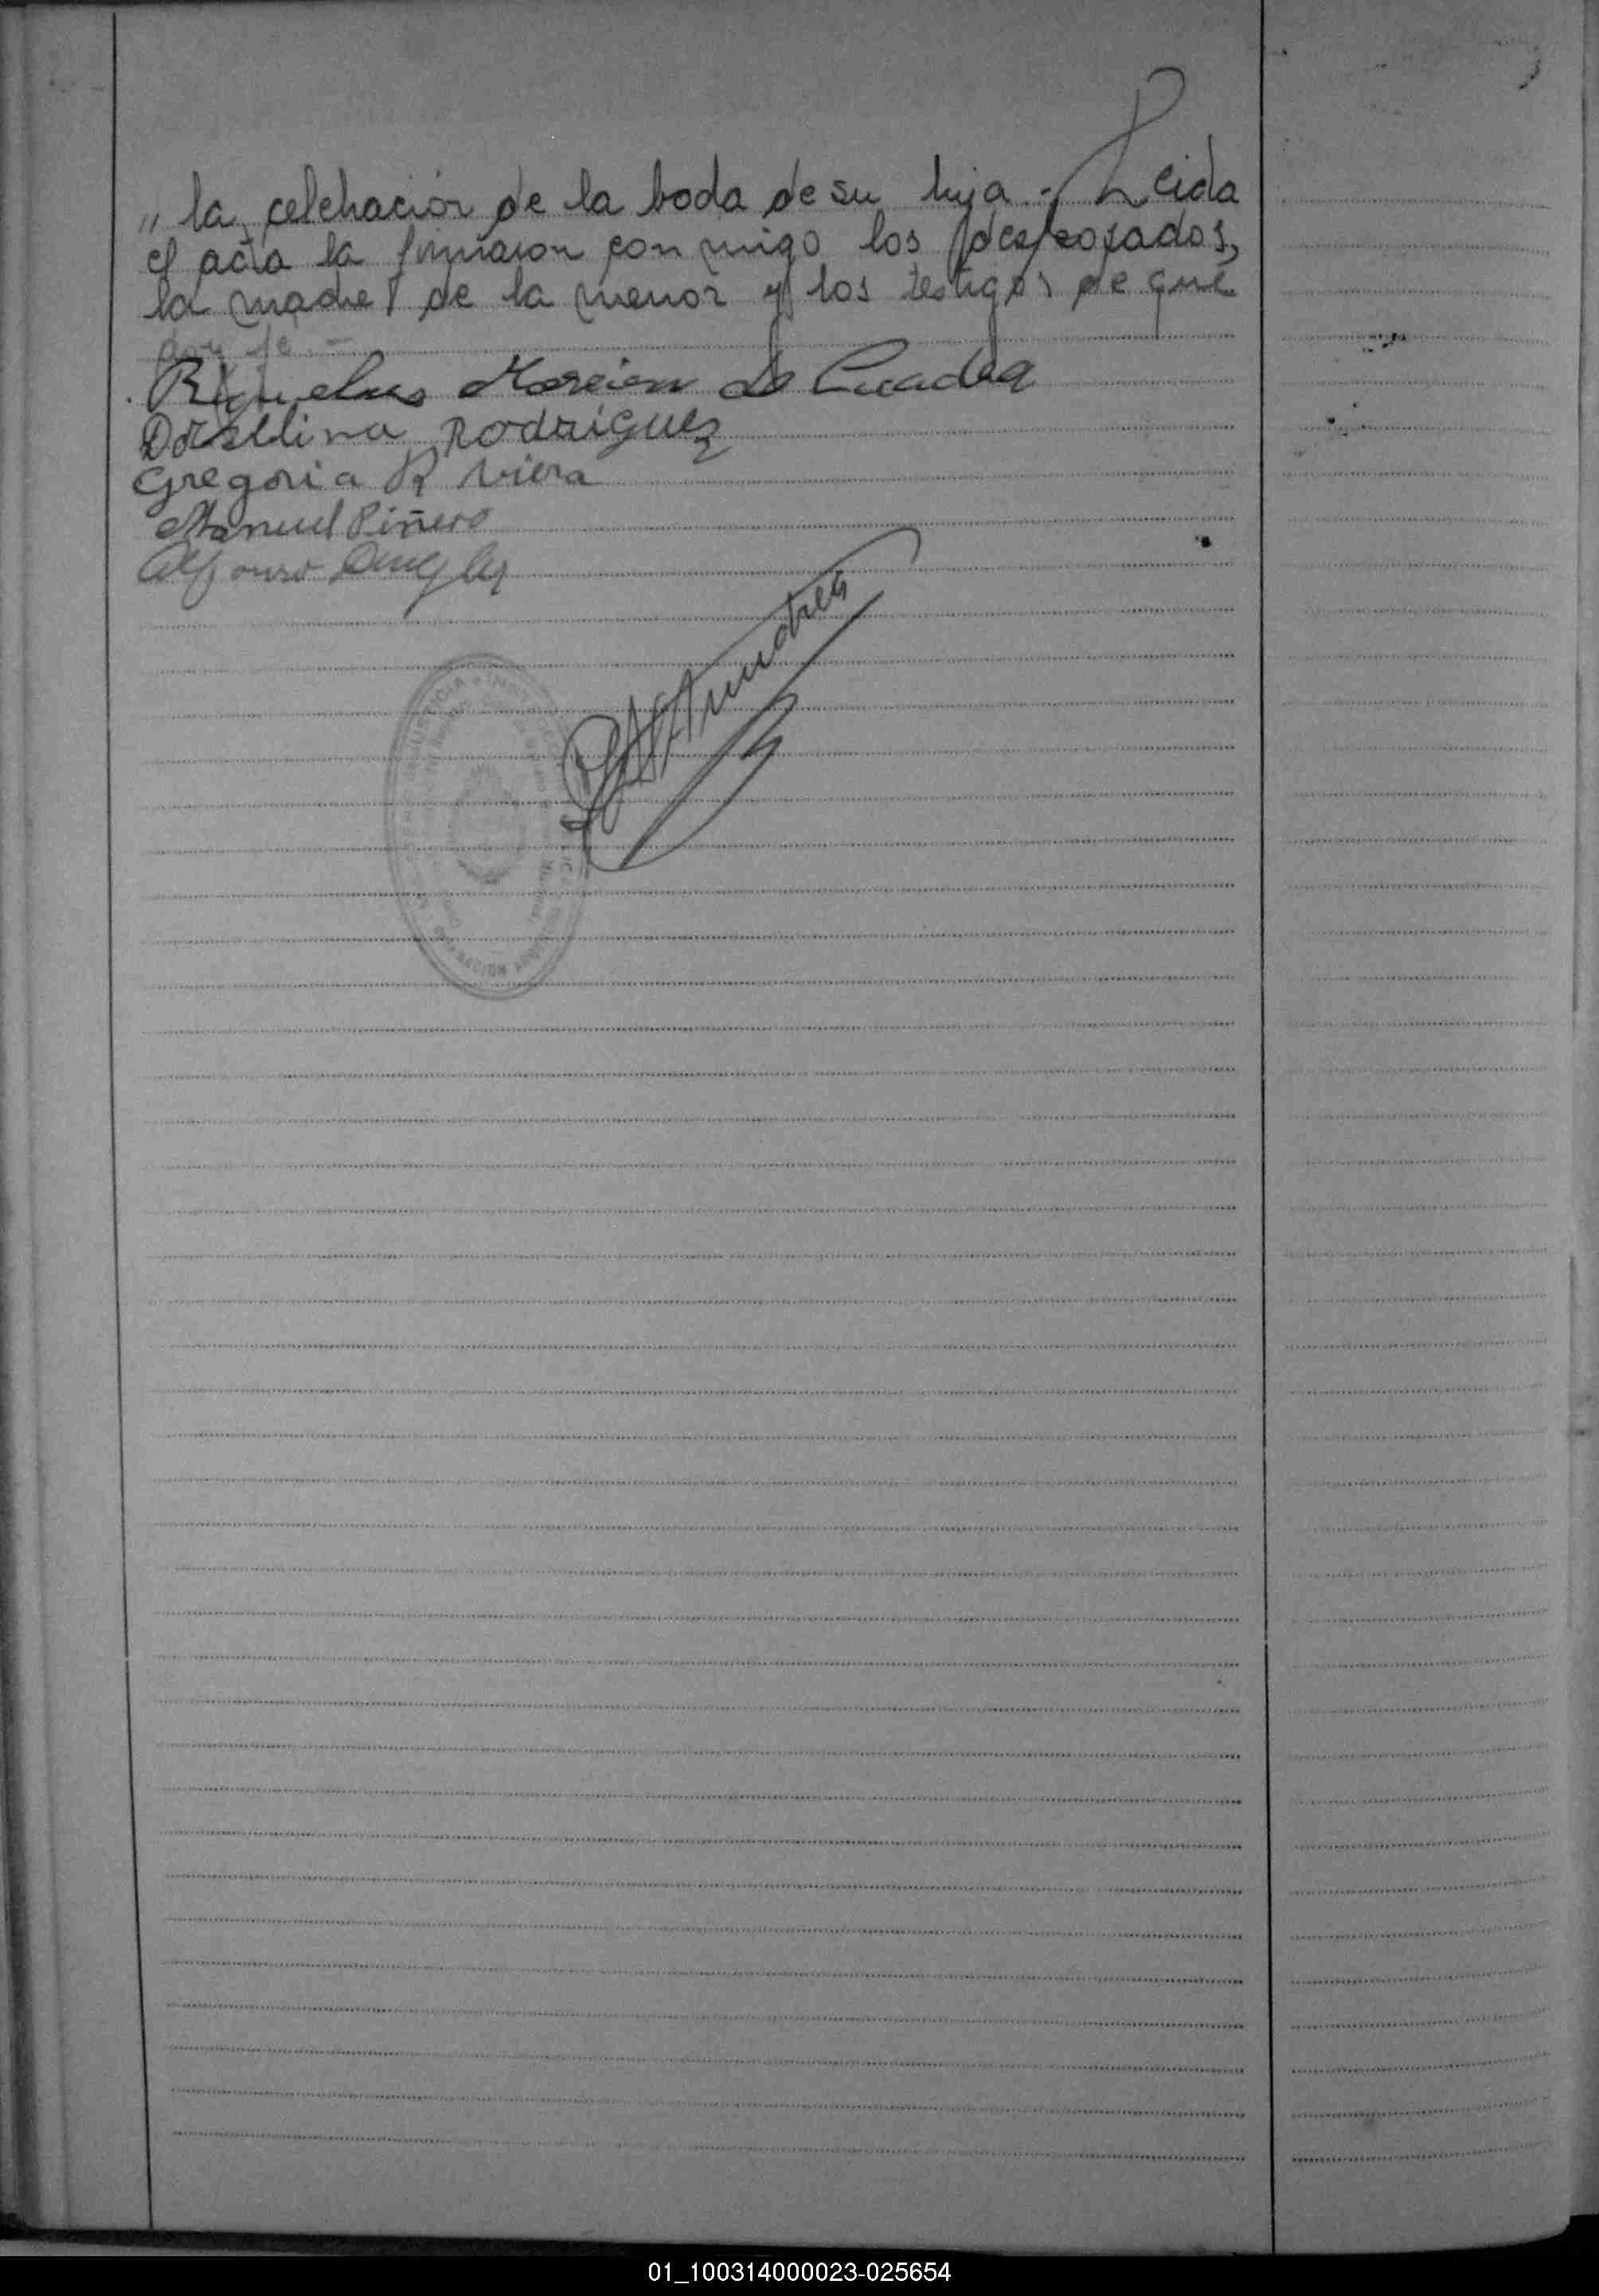 " la celebración de la boda de su hija.- Leida
el acta la firmaron con migo los desposados,
la madre de la menor y los testigos de que
doy fe.-
Morcien de Cuadra
Dorsilina Rodríguez
Gregoria R Viera
Manuel Piñero
Alfonso
JUSTICIA
01_100314000023-025654